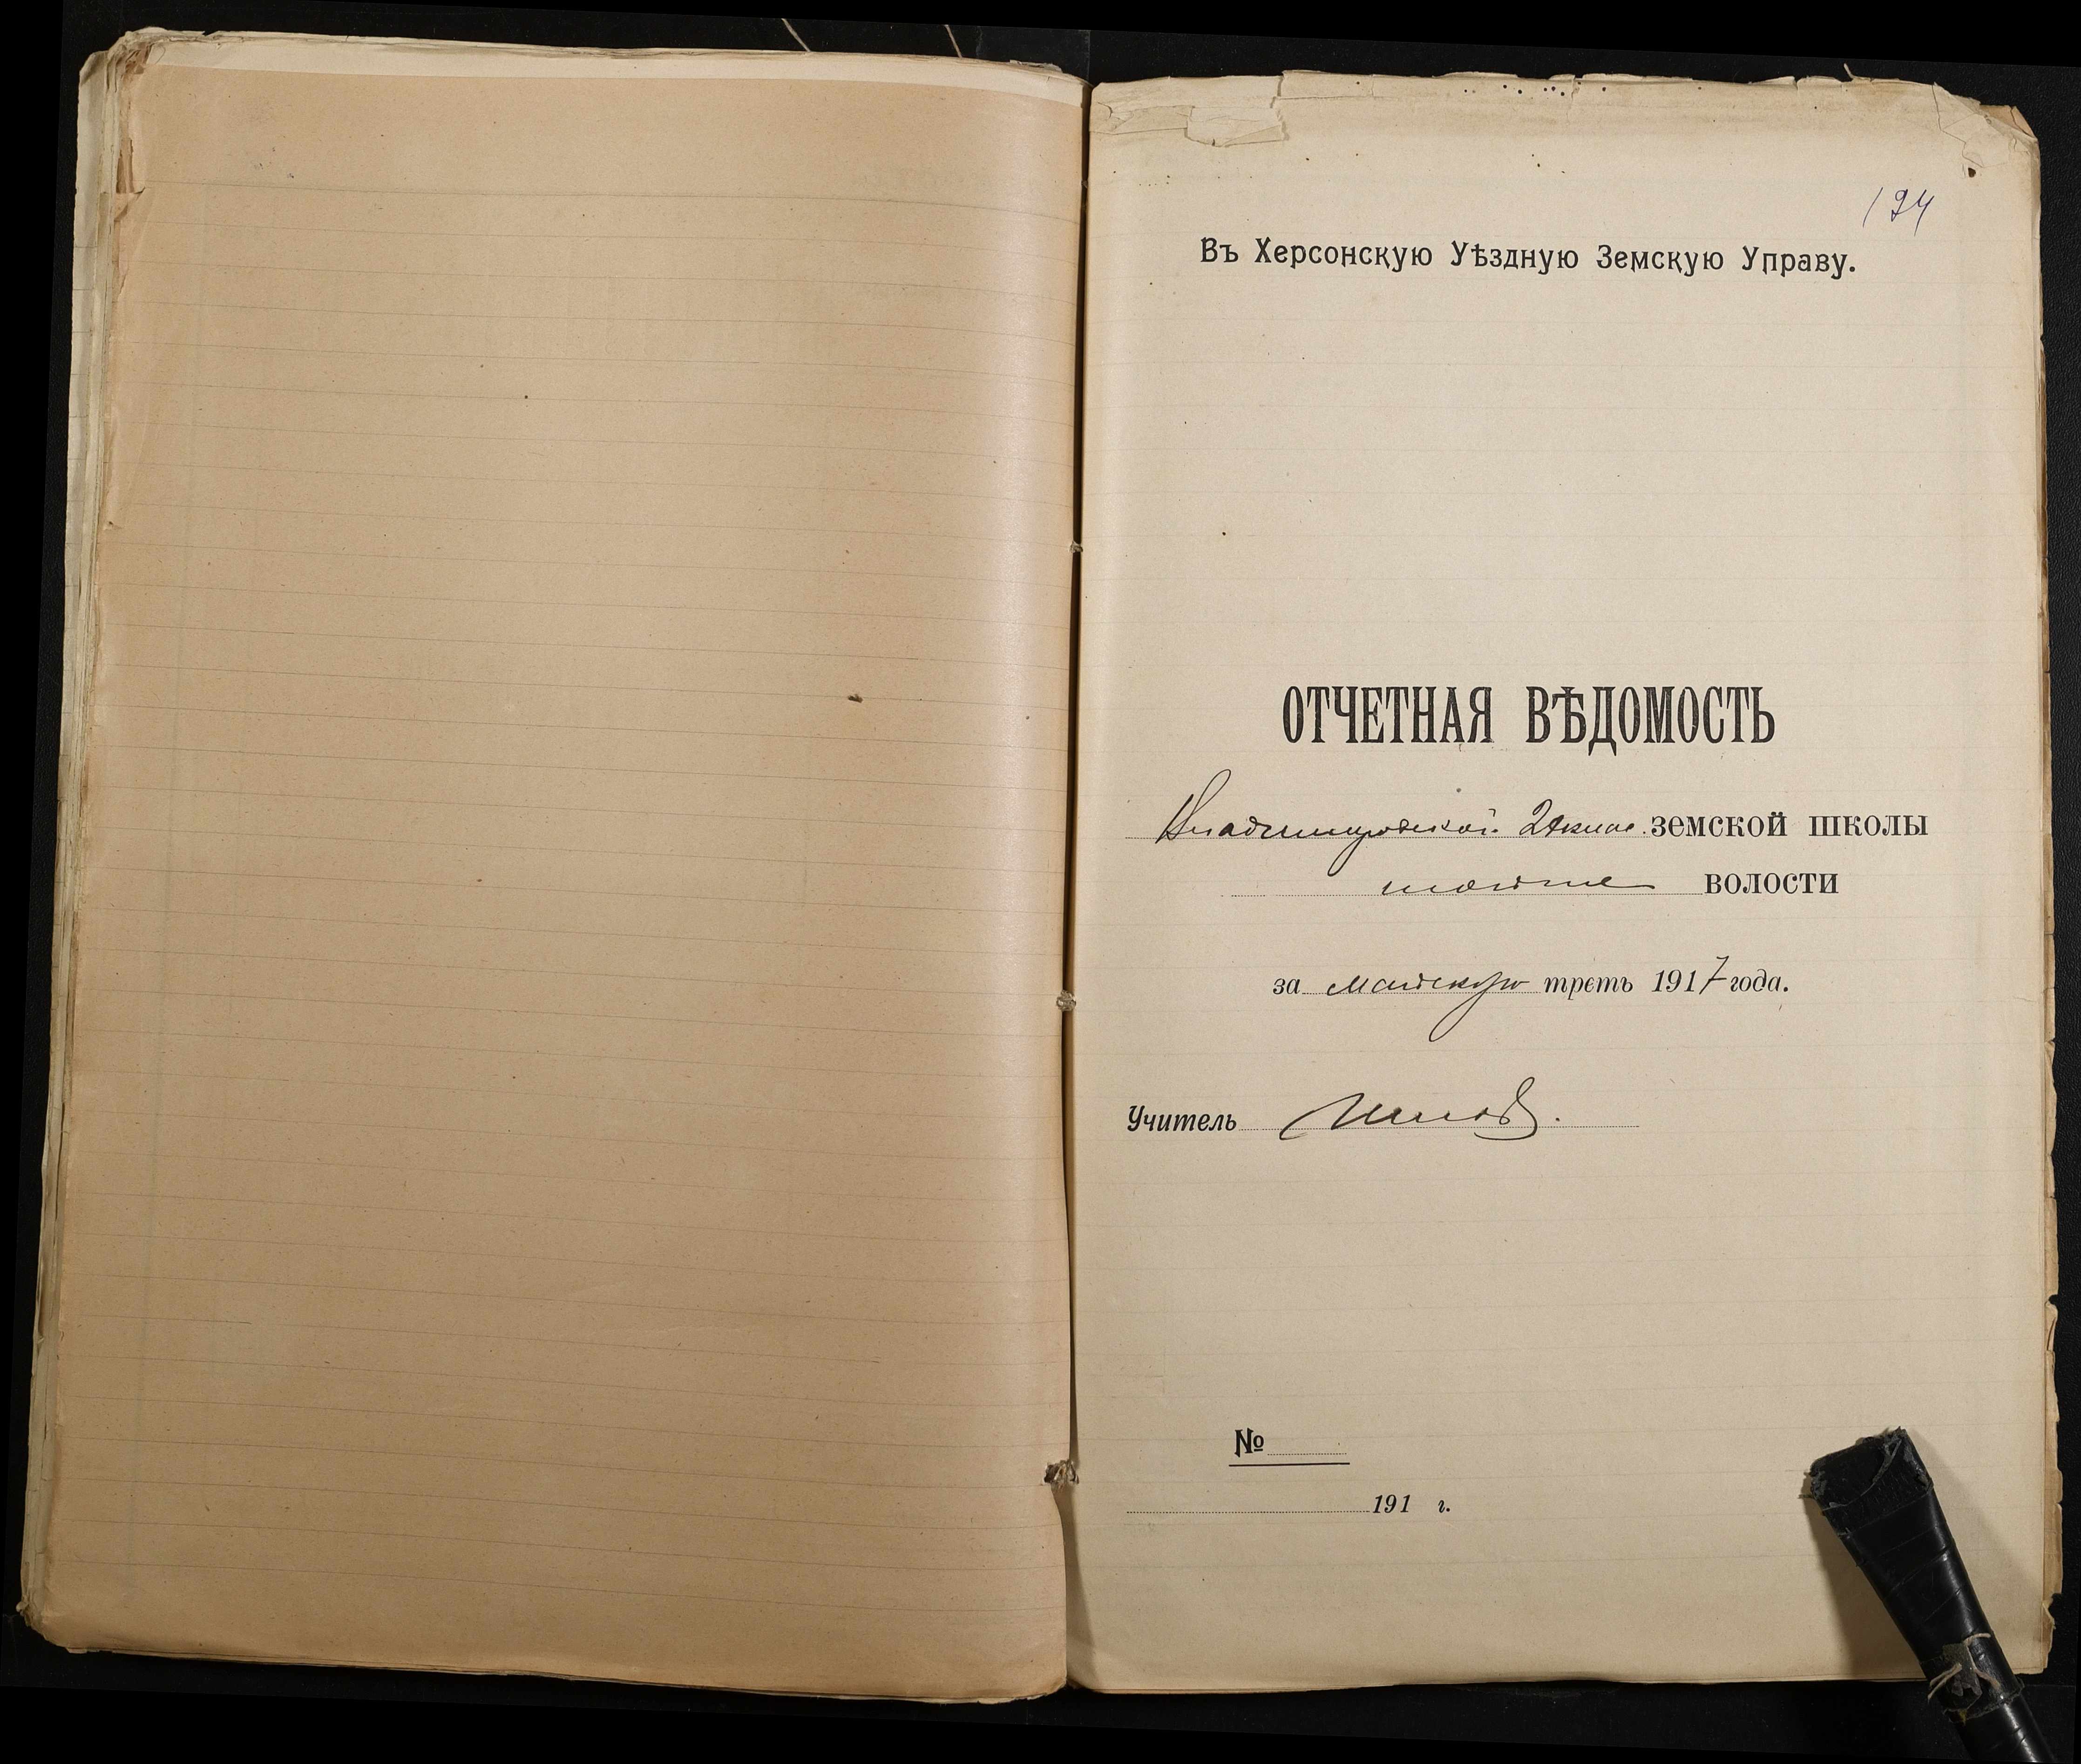 194
Въ Херсонскую Уѣздную Земскую Управу.
ОТЧЕТНАЯ ВѢДОМОСТЬ
Владимировской 2хклас. земской школы
тоише волости
за Майскую треть 1917 года.
Учитель
№
191 г.